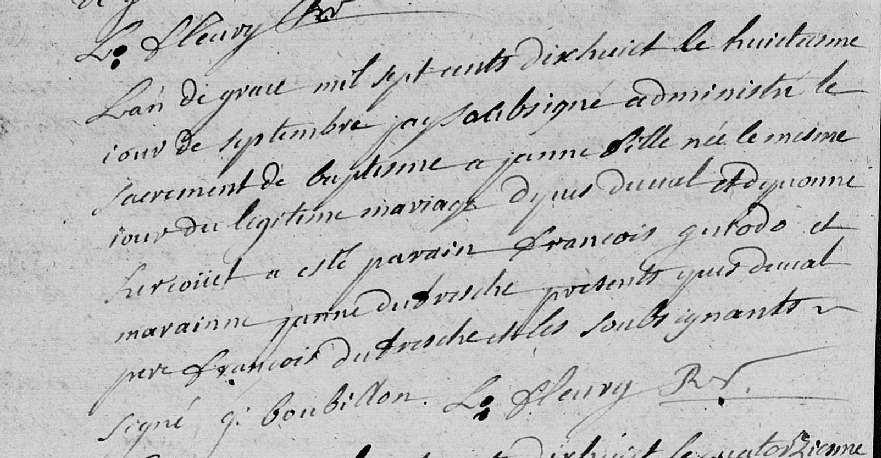 L. fleury Rr
Lan de grace mil sept cents dixhuict le huictiesme
iour de septembre jay soubsigné administré le
sacrement de baptesme a janne fille née le mesme
iour du legitime mariage dyves duval et dyvonne
hercouet a esté parain francois guiodo et
marainne janne dufresche presents yves duval
pere francois dufresche et les soubsignants
signé g. boubillon. L. fleury Rr.
dixhuict le quatorzienne